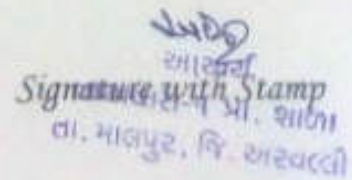 આચાર્ય
Signature with Stamp
પ્રા. શાળા
તા. માલપુર, જિ. અરવલ્લી